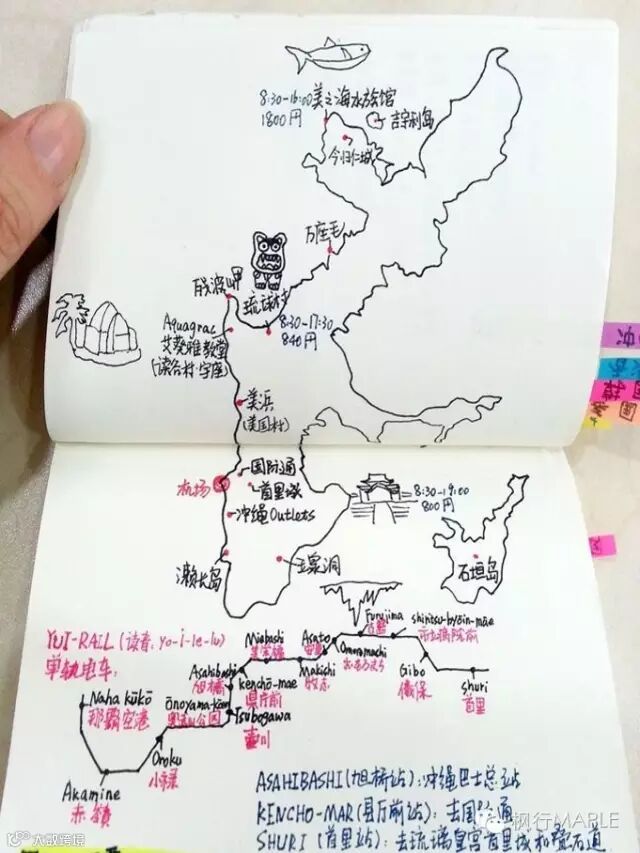 8:30-16:00 美之海水族馆
1800円
古宇利岛
今归仁城
万座毛
残波岬
琉球村
8:30-17:30
840円
Aquagrac
艾葵雅教堂
(读谷村字座
美浜
(美国村)
国际通
机场
首里城
8:30-19:00
800円
冲绳Outlets
濑长岛
玉泉洞
石垣岛
YUI-RAIL (读着: yo-i-le-lu)
单轨电车:
Furujima
古島
shiritsu-byōin-mae
市立病院前
Miebashi
美栄橋
Asato
安里
Omoromachi
おもろまち
Asahibashi
旭橋
kenchō-mae
県庁前
Makishi
牧志
Gibo
儀保
shuri
首里
Naha kūkō
那霸空港
ōnoyama-kōen
奥武山公园
Tsubogawa
壷川
Oroku
小禄
Akamine
赤嶺
ASAHIBASHI(旭桥站):冲绳巴士总站
KENCHO-MAR(县厅前站):去国际通
SHURI (首里站):去琉璃皇宫首里城和石道
大数跨境
枫行MAPLE